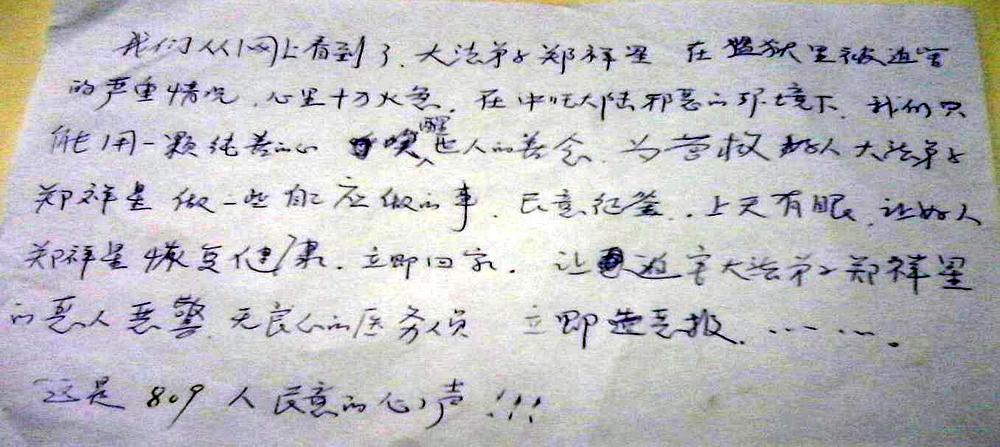 我们从网上看到了、大法弟子郑祥星 在监狱里被迫害
的严重情况、心里十万火急、在中国大陆邪恶的环境下、我们只
能用一颗纯善的心 唤醒世人的善念、为营救好人大法弟子
郑祥星做一些自己应做的事、民意征签、上天有眼、让好人
郑祥星恢复健康、立即回家、让迫害大法弟子郑祥星
的恶人恶警、无良心的医务人员 立即遭恶报、………。
这是 809 人民意的心声!!!